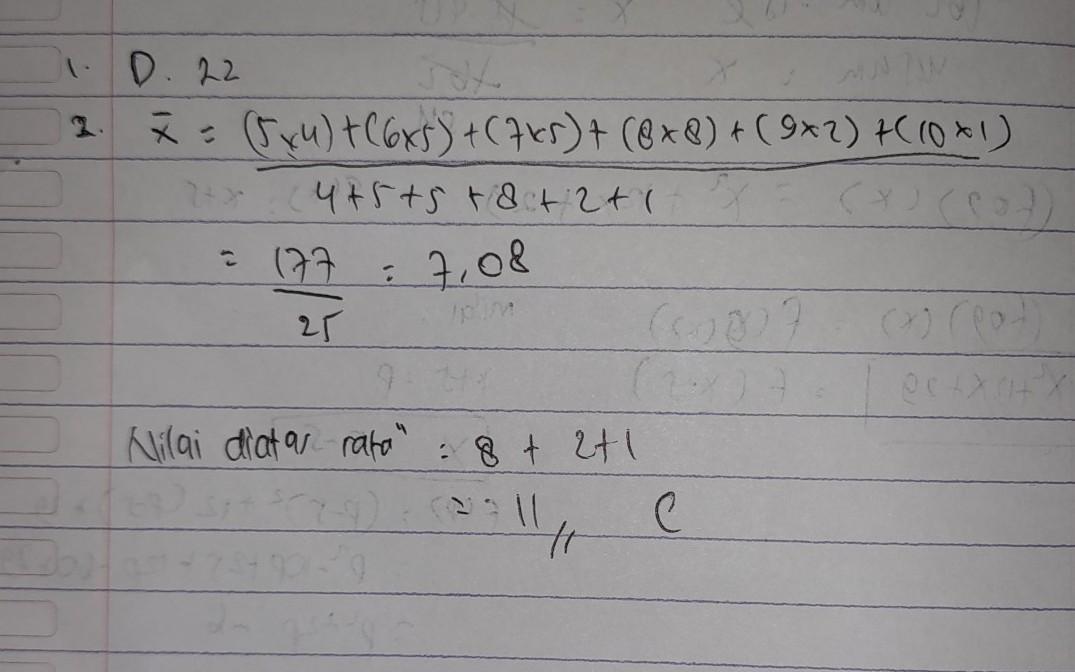 1. D. 22
2. x̄ = (5x4)+(6x5)+(7x5)+(8x8)+(9x2)+(10x1)
4+5+5+8+2+1
= 177 = 7,08
25
Nilai diatas rata" = 8 + 2+1
= 11 // C